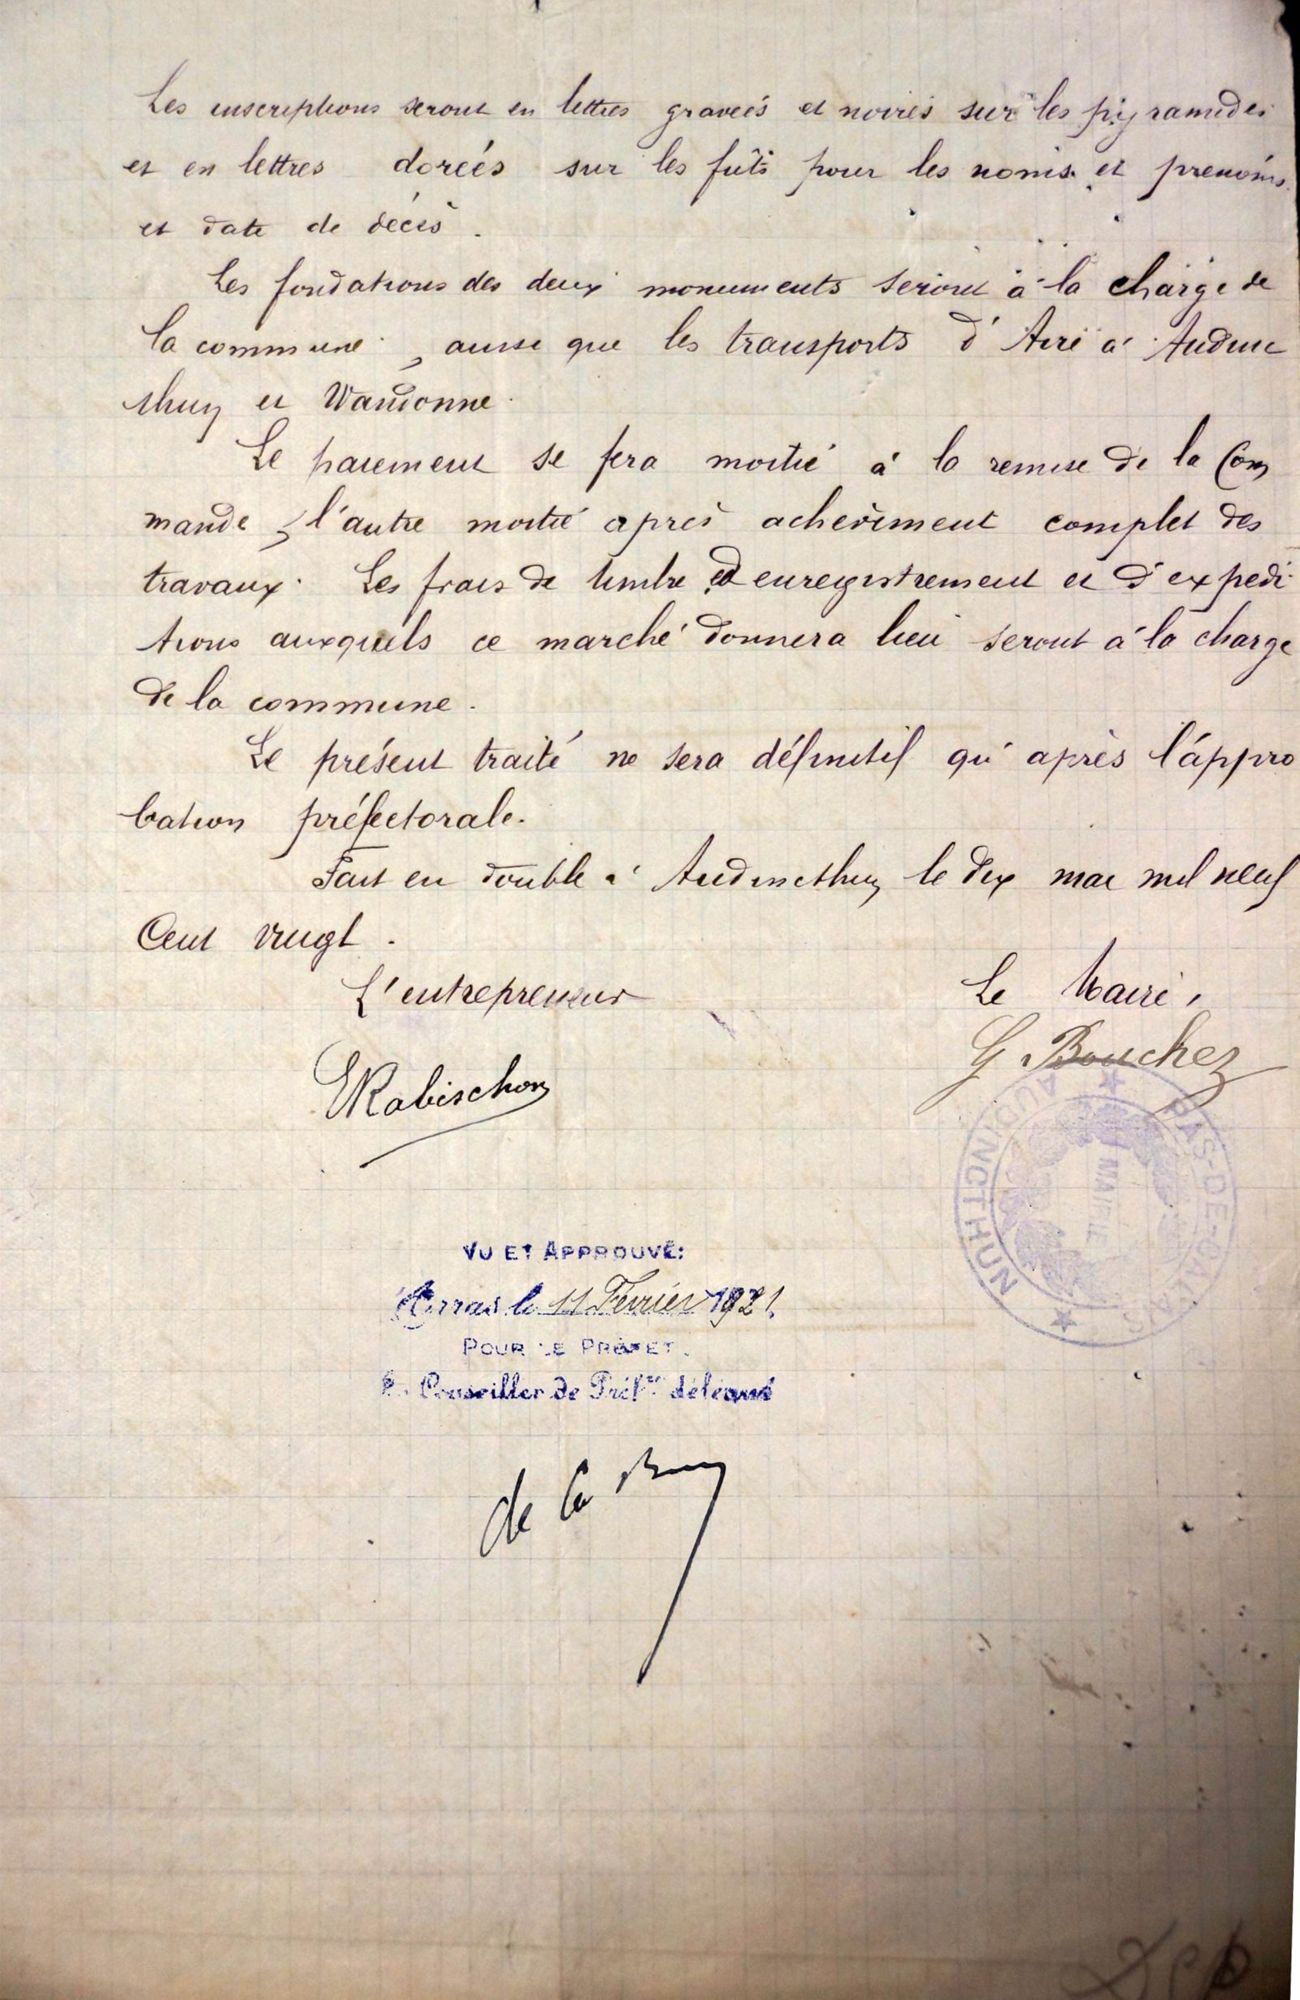 Les inscriptions seront en lettres gravées et noires sur les pyramides
et en lettres dorées sur les fûts pour les noms et prenoms
et date de décès.
Les fondations des deux monuments seront à la charge de
la commune, ainsi que les transports d'Aire à Audinc
thun et Wandonne.
Le paiement se fera moitié à la remise de la Com
mande, l'autre moitié après achèvement complet des
travaux. Les frais de timbre d'enregistrement et d'expedi
tions auxquels ce marché donnera lieu seront à la charge
de la commune.
Le présent traité ne sera définitif qu'après l'appro
bation préfectorale.
Fait en double à Audincthun le dix mai mil neuf
Cent vingt.
L'entrepreneur
Le Maire,
G. Bouchez
ERabischon
PAS-DE-CALAIS
MAIRIE
AUDINCTHUN
VU ET APPROUVÉ:
Arras le 11 Février 1921
POUR LE PRÉFET.
Le Conseiller de Préf.re délégué
de la